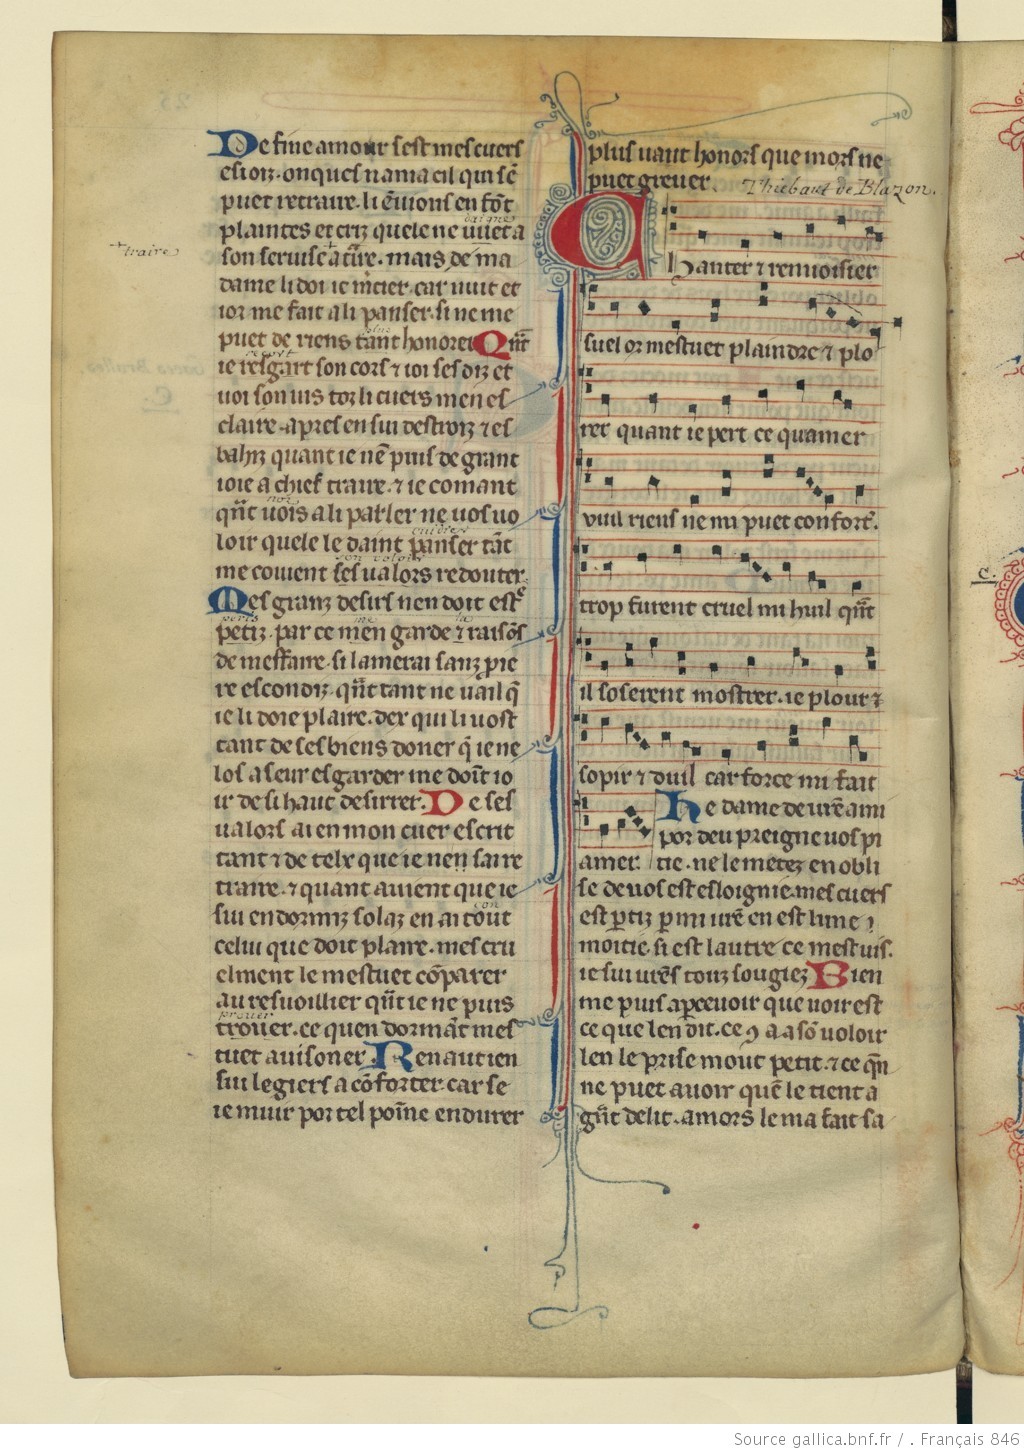 De fine amour sest mes cuers
esioiz. onques nama cil qui sẽ
puet retraire. li ẽuious en fõt
plaintes et criz quele ne
daigne
son seruise a
+traire
mais de ma
dame li doi ie mẽcier. car nuit et
ior me fait a li panser. si ne me
puet de riens tant honorer Qñt
plus
ie resgart son cors & ioi ses diz et
uoi son uis toz li cuers men es
claire. apres en sui destroiz & es
bahiz quant ie nẽ puis de grant
ioie a chief traire. & ie comant
qñt uois a li parler ne uos uo
loir quele le daint panser tãt
me couient ses ualors redouter.
Mes granz desirs nen doit estre
petiz. par ce men garde & raisõs
de meffaire. si lamerai sanz pre
re escondiz. qñt tant ne uail q̃
ie li doie plaire. dex qui li uost
tant de ses biens doner q̃ ie ne
los aseur esgarder me doit io
ir de si haut desirrer. De ses
ualors ai en mon cuer escrit
tant & de telx que ie nen sai re
traire. & quant auient que ie
sui endormiz solaz en ai tout
celui que doit plaire. mes cru
elment le mestuet cõparer
au resuoillier qñt ie ne puis
prouer
trouer. ce quen dormãt mes
tuet auisoner. Renaut ien
sui legiers a cõforter car se
ie muir por tel poine endurer
plus uaut honors que mors ne
puet greuer. Thiebaut de Blazon.
Chanter & renuoisier
suel or mestuet plaindre & plo
rer quant ie pert ce quamer
vuil riens ne mi puet confort̃.
trop furent cruel mi huil qñt
il soserent mostrer. ie plour &
sopir & duil car force mi fait
amer.
He dame de urẽ ami
por deu preigne uos pi
tie. ne le metez en obli
se de uos est esloignie. mes cuers
est ꝑtiz ꝑ mi urẽ en est lune
moitie. si est lautre ce mest uis.
ie sui urẽs touz sougiez Bien
me puis aꝑceuoir que uoir est
ce que len dit. ce ꝯ a a sõ uoloir
len le prise mout petit. & ce qñ
ne puet auoir quẽ le tient a
gñt delit. amors le ma fait sa
C.
Source gallica.bnf.fr / . Français 846